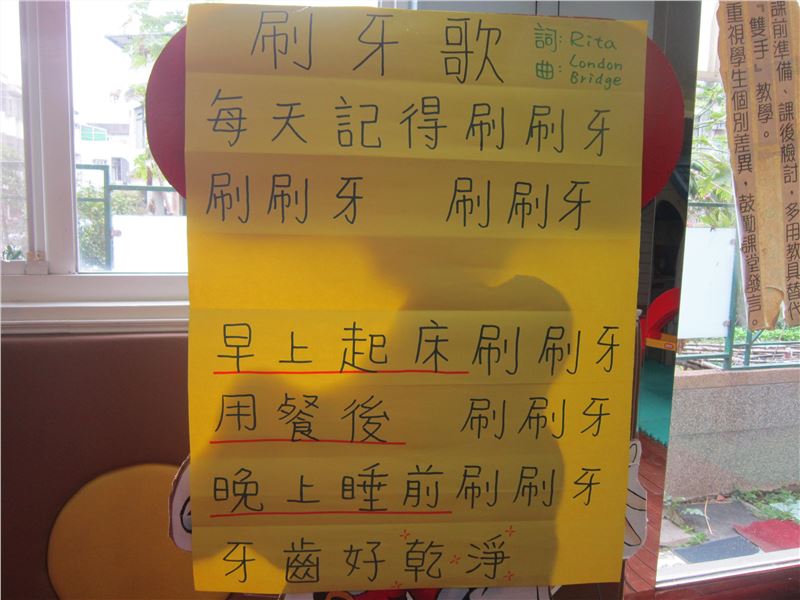 刷牙歌
詞: Rita
曲: London
Bridge
每天記得刷刷牙
刷刷牙 刷刷牙
早上起床刷刷牙
用餐後 刷刷牙
晚上睡前刷刷牙
牙齒好乾淨
課前準備、課後檢討，多用教具替代
『雙手』教學。
重視學生個別差異，鼓勵課堂發言。